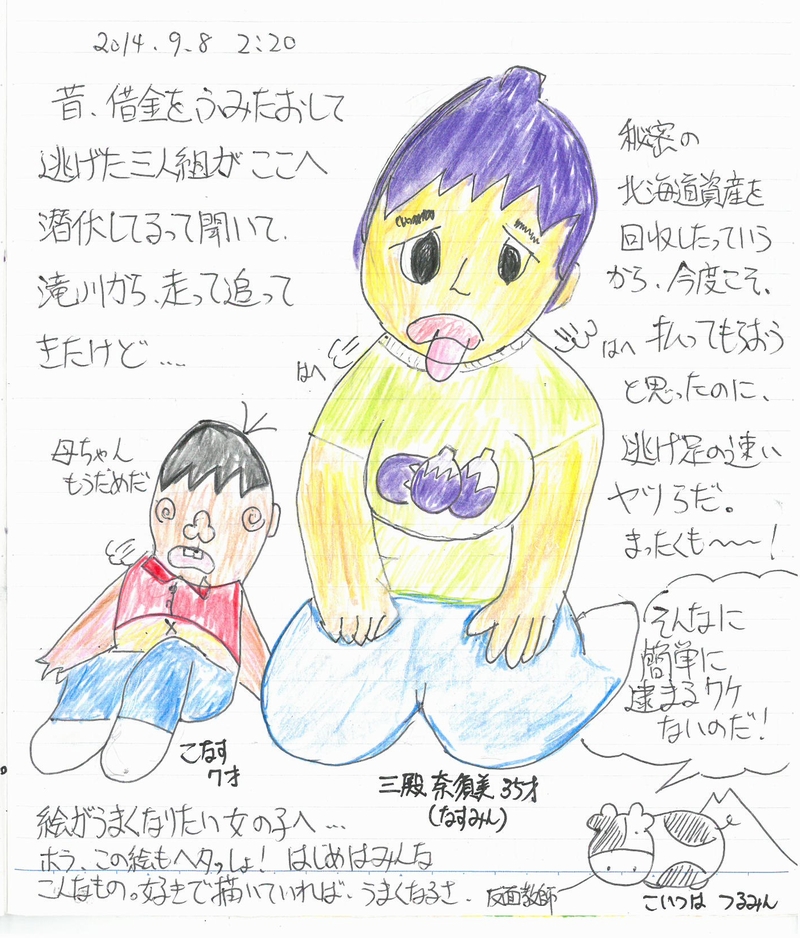 2014.9.8 2:20
昔、借金をふみたおして
逃げた三人組が ここへ
潜伏してるって聞いて、
滝川から、走って追って
きたけど ....
秘密の
北海道資産を
回収したっていう
から、今度こそ、
払ってもらおう
と思ったのに、
逃げ足の速い
ヤツらだ。
まったくも〜〜!
はへ
はへ
母ちゃん
もうだめだ
そんなに
簡単に
逮まるワケ
ないのだ!
こなす
7才
三殿 奈須美 35才
(なすみん)
絵がうまくなりたい女の子へ...
ホラ、この絵もヘタっしょ! はじめはみんな
こんなもの。好きで描いていれば、うまくなるさ。
反面教師
こいつは つるみん